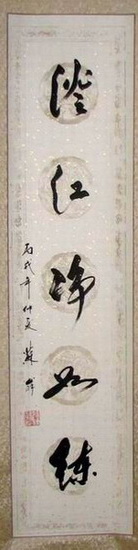 澄江净如练
丙戌年仲夏 苏